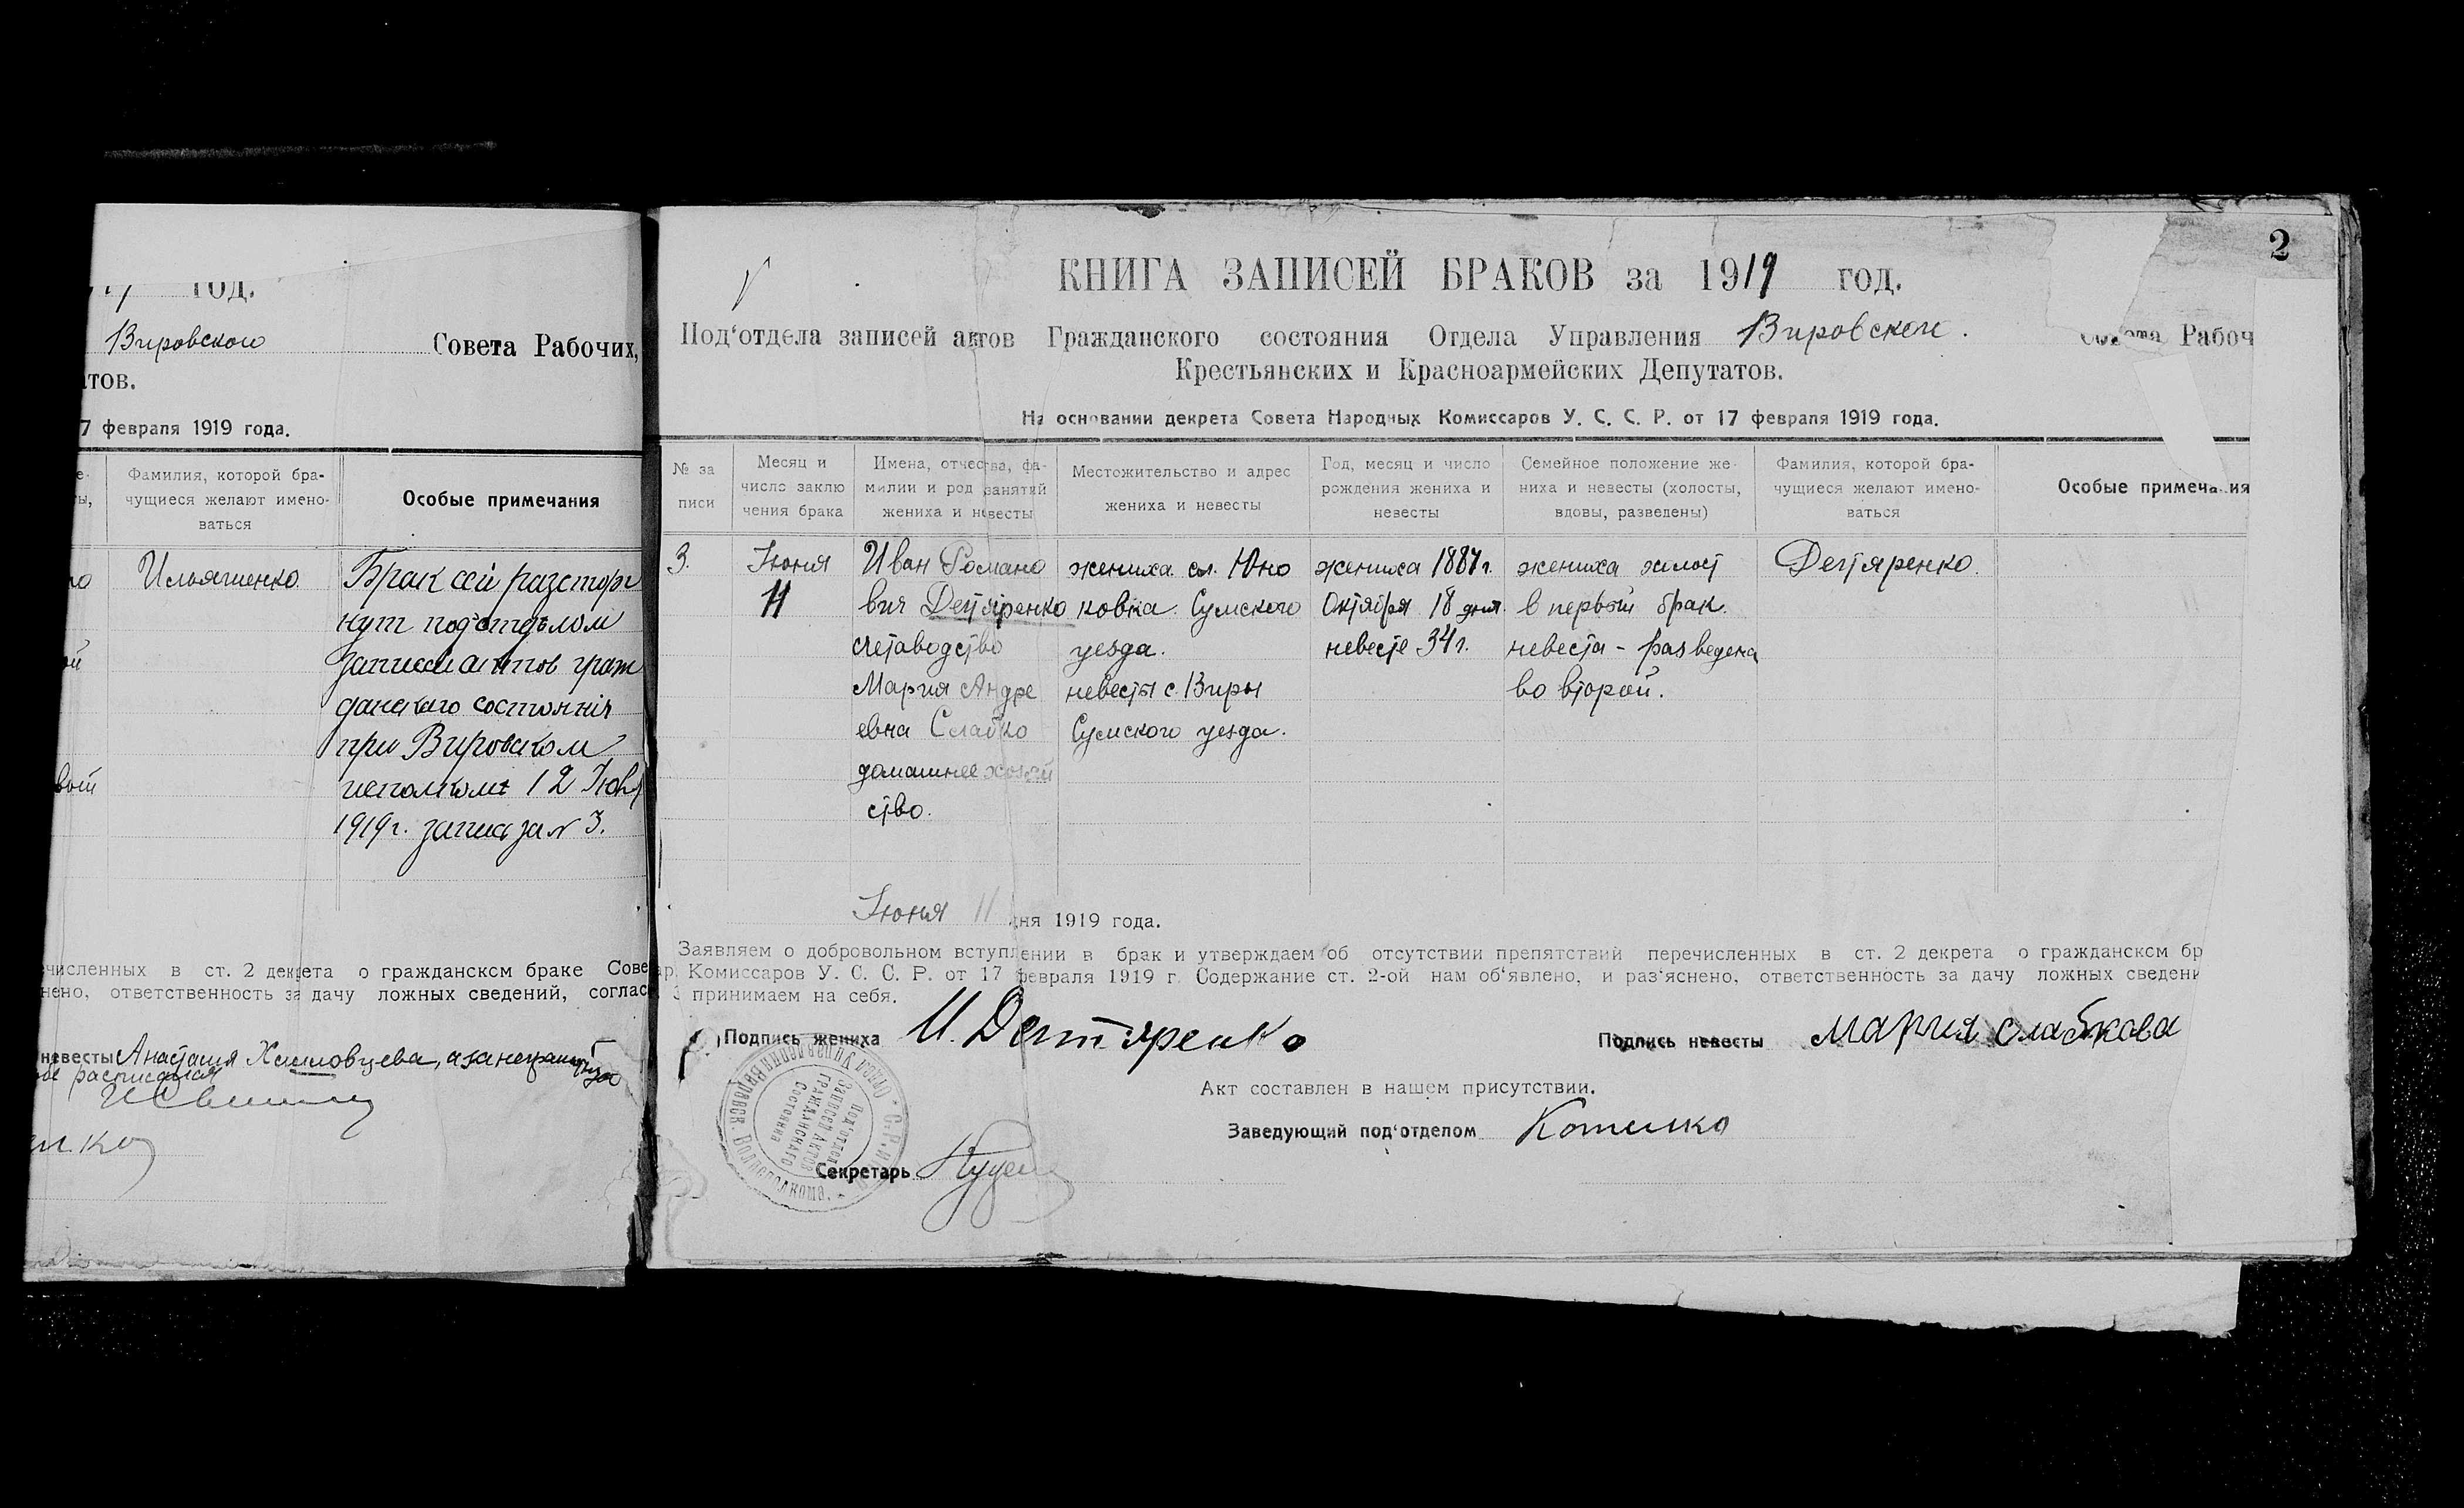 год.
Вировскои Совета Рабочих,
тов.
7 февраля 1919 года.
Фамилия, которой бра-
чущиеся желают имено-
ваться
Особые примечания
Ильяшенко
Брак сей разторг
нут подотделом
записей актов граж
данского состояния
при Вировском
исполкоме 12 Июня
1919 г. запись за № 3.
численных в ст. 2 декрета о гражданском браке Сове
нено, ответственность за дачу ложных сведений, соглас
невесты Анастасия
расписался
2
КНИГА ЗАПИСЕЙ БРАКОВ за 1919 год.
Под‘отдела записей актов Гражданского состояния Отдела Управления Вировскои. Совета Рабоч
Крестьянских и Красноармейских Депутатов.
На основании декрета Совета Народных Комиссаров У. С. С. Р. от 17 февраля 1919 года.
№ за
писи
Месяц и
число заклю
чения брака
Имена, отчества, фа-
милии и род занятий
жениха и невесты
Местожительство и адрес
жениха и невесты
Год, месяц и число
рождения жениха и
невесты
Семейное положение же-
ниха и невесты (холосты,
вдовы, разведены)
Фамилия, которой бра-
чущиеся желают имено-
ваться
Особые примечания
3.
Июня
11
Иван Романо
вич Дегтяренко
счетоводство
Мария Андре
евна Слабко
домашнее хозяй
ство.
жениха сл. Юно
ковка. Сумского
уезда.
невесты с. Виры
Сумского уезда.
жениха 1887 г.
Октября 18 дня.
невесте 34 г.
жениха холост
в первый брак.
невеста - разведена
во второй.
Дегтяренко.
Июня 11 дня 1919 года.
Заявляем о добровольном вступлении в брак и утверждаем об отсутствии препятствий перечисленных в ст. 2 декрета о гражданском бр
Комиссаров У. С. С. Р. от 17 февраля 1919 г. Содержание ст. 2-ой нам об‘явлено, и раз‘яснено, ответственность за дачу ложных сведени
принимаем на себя.
Подпись жениха И. Дегтяренко
Подпись невесты Мария Слабкова
Акт составлен в нашем присутствии.
Заведующий под‘отделом Котелко
Секретарь
Отдел Управления Вировск. Волисполкома.
Под‘отдел
Записей Актов
Гражданскаго
Состояния